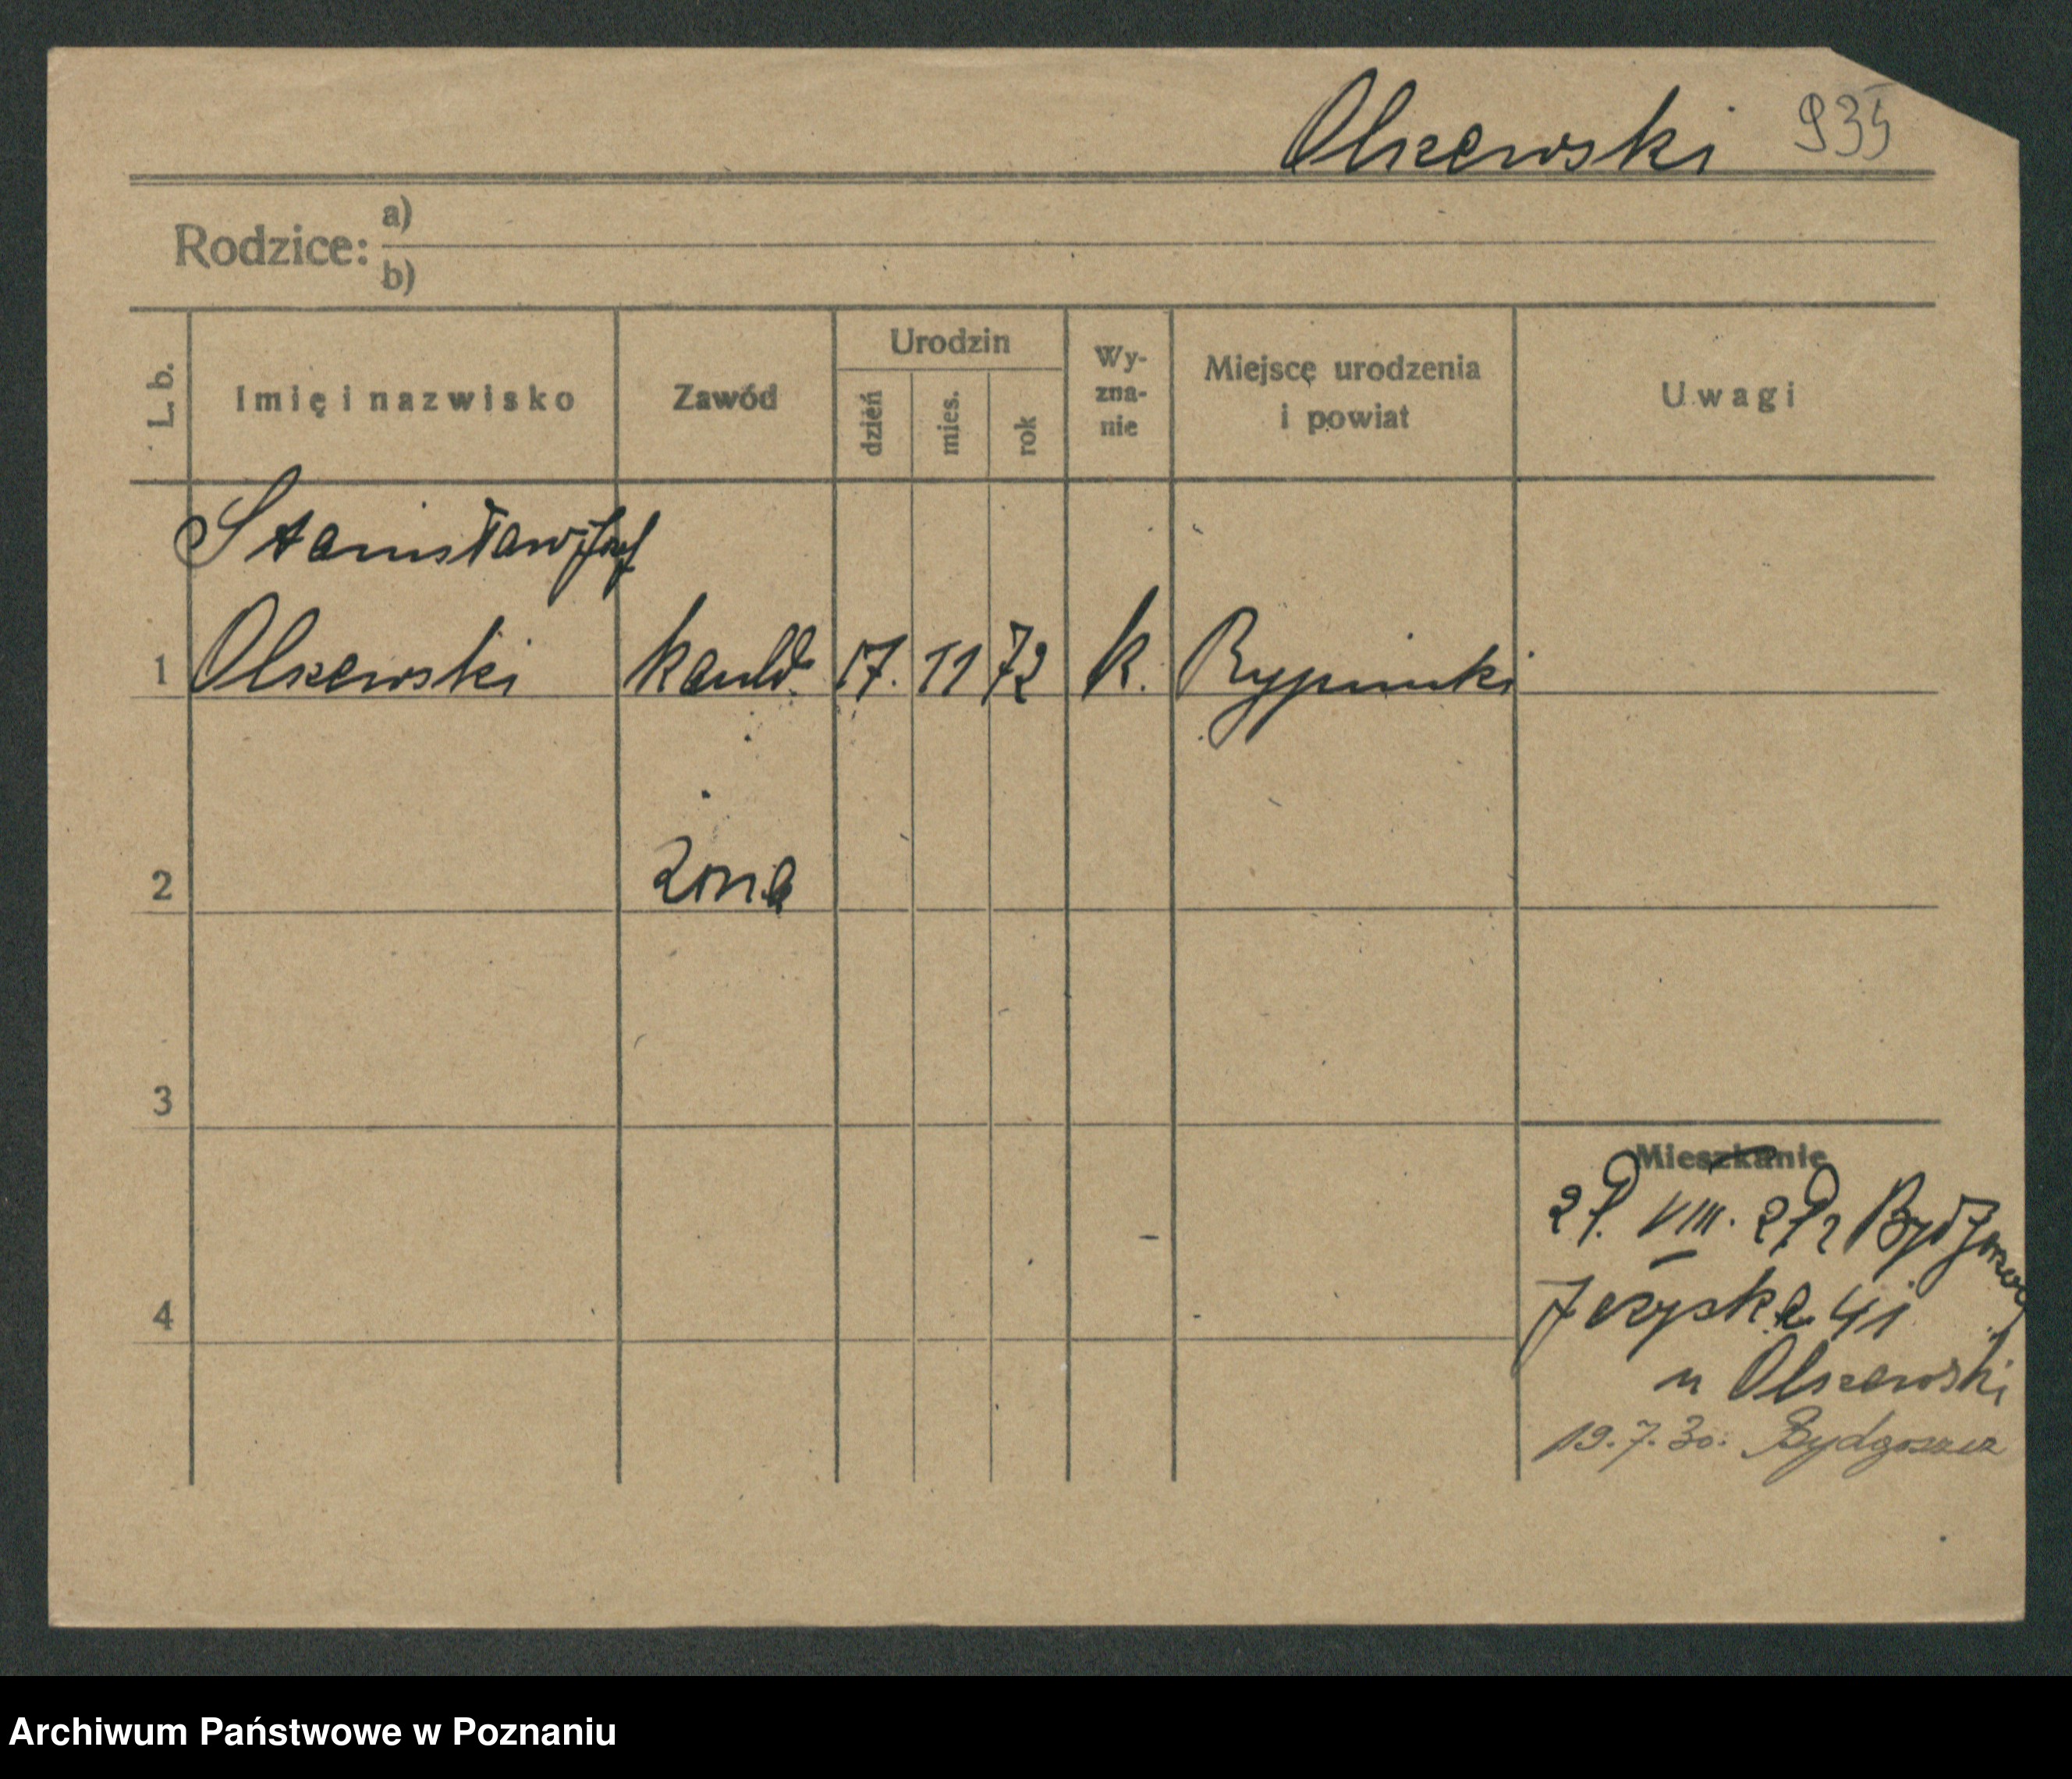 Olszewski 935
Rodzice: a)
b)
L. b.
Imię i nazwisko
Zawód
Urodzin
dzień
mies.
rok
Wy-
zna-
nie
Miejsce urodzenia
i powiat
Uwagi
Stanisław Józef
1 Olszewski 17. 11 72 k. Rypinski
2 żona
3
4
Mieszkanie
VIII. z Bydgoszczy
41
u Olszewski
19.7.30. Bydgoszcz
Archiwum Państwowe w Poznaniu